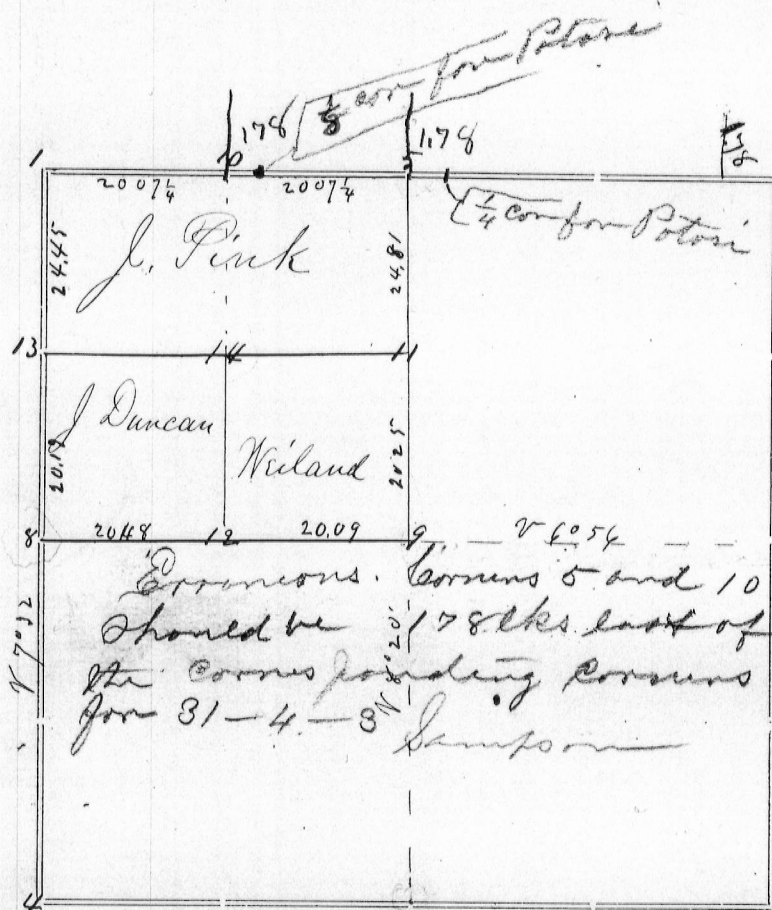 1/8 cor for Potosi
178 1.78
1 10 5 3/8
2007 1/4 2007 1/4
1/4 cor for Potosi
24.45 J. Pink 24.81
13 14 11
J Duncan
20.19 Weiland 20.25
8 2048 12 20.09 9 V 6°54
Erronions. Corners 5 and 10
should be 178 lks east of
the corresponding corners
for 31-4-3
Sampson
V 7°32
4